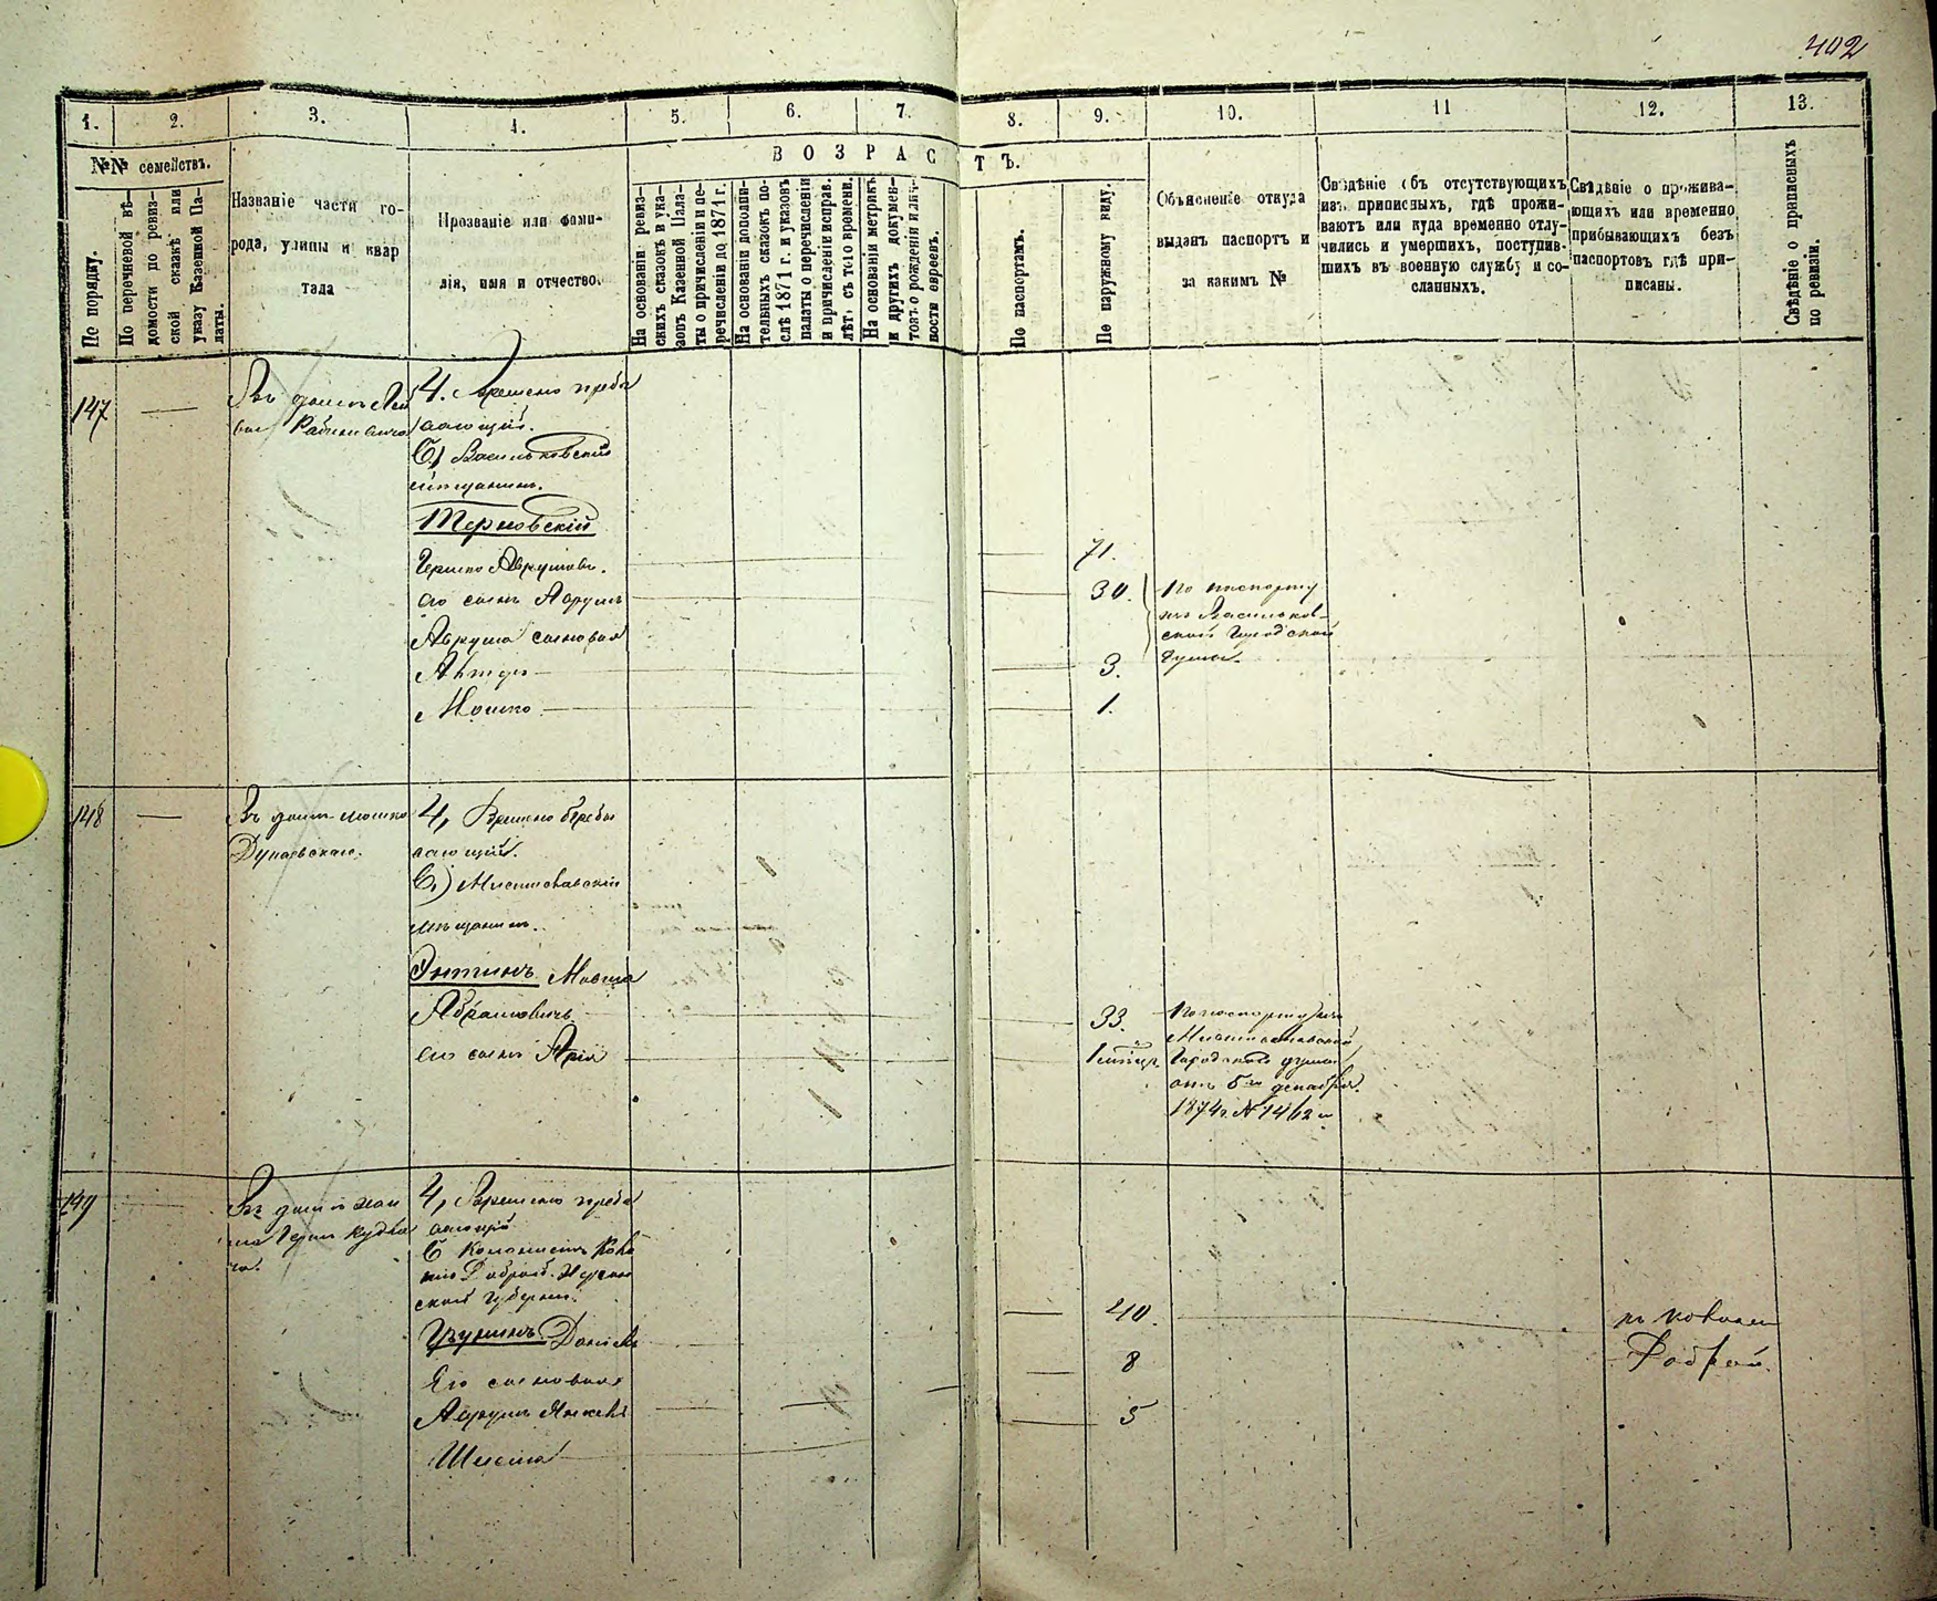 402
1.
2.
3.
4.
5.
6.
7.
8.
9.
10.
11
12.
13.
№№ семействъ.
По порядку.
По перечневой вѣ-
домости по ревиз-
ской сказкѣ или
указу Казенной Па-
латы.
Названіе части го-
рода, улицы и квар
тала
Прозваніе или фами-
лія, имя и отчество.
ВОЗРАСТЪ.
На основаніи ревиз-
скихъ сказокъ и ука-
зовъ Казенной Пала-
ты о причисленіи и пе-
речисленіи до 1871 г.
На основаніи дополни-
тельныхъ сказокъ по-
слѣ 1871 г. и указовъ
палаты о перечисленіи
и причисленіи исправ.
лѣт. съ того времени.
На основаніи метрикъ
и другихъ докумен-
товъ о рожденіи и лич-
ности евреевъ.
По паспортамъ.
По наружному виду.
Объясненіе откуда
выданъ паспортъ и
за какимъ №
Свѣдѣніе объ отсутствующихъ
изъ приписныхъ, гдѣ прожи-
ваютъ или куда временно отлу-
чились и умершихъ, поступив-
шихъ въ военную службу и со-
сланныхъ.
Свѣдѣніе о прожива-
ющихъ или временно
прибывающихъ безъ
паспортовъ гдѣ при-
писаны.
Свѣдѣніе о приписныхъ
по ревизіи.
147
Въ домѣ
4. Временно пребы
вающій.
б) Васильковскій
мѣщанинъ.
Терновскій
Гершко Аврумовъ.
71.
его сынъ Аврумъ
30.
По паспорту
изъ Васильков-
ской Городской
думы.
Аврума сыновья
3.
Мошко
1.
148
Въ домѣ Мошко
Дунаевскаго.
4, Временно пребы
вающій.
б) Мстиславскій
мѣщанинъ.
Энтинъ Мовша
Абрамовичъ
33.
его сынъ Арія
По паспорту изъ
Мстиславской
Городской думы
отъ 5го декабря
1874г. № 1462
149
Въ домѣ
4, Временно пребы
вающій
б Колонистъ
ской губерніи.
40.
Его сыновья
8
5